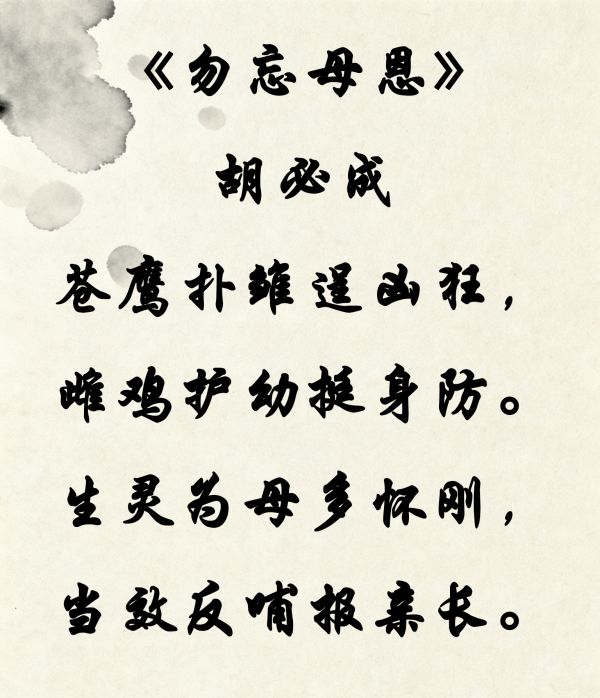 《勿忘母恩》
胡必成
苍鹰扑雏逞凶狂，
雌鸡护幼挺身防。
生灵为母多怀刚，
当效反哺报亲长。